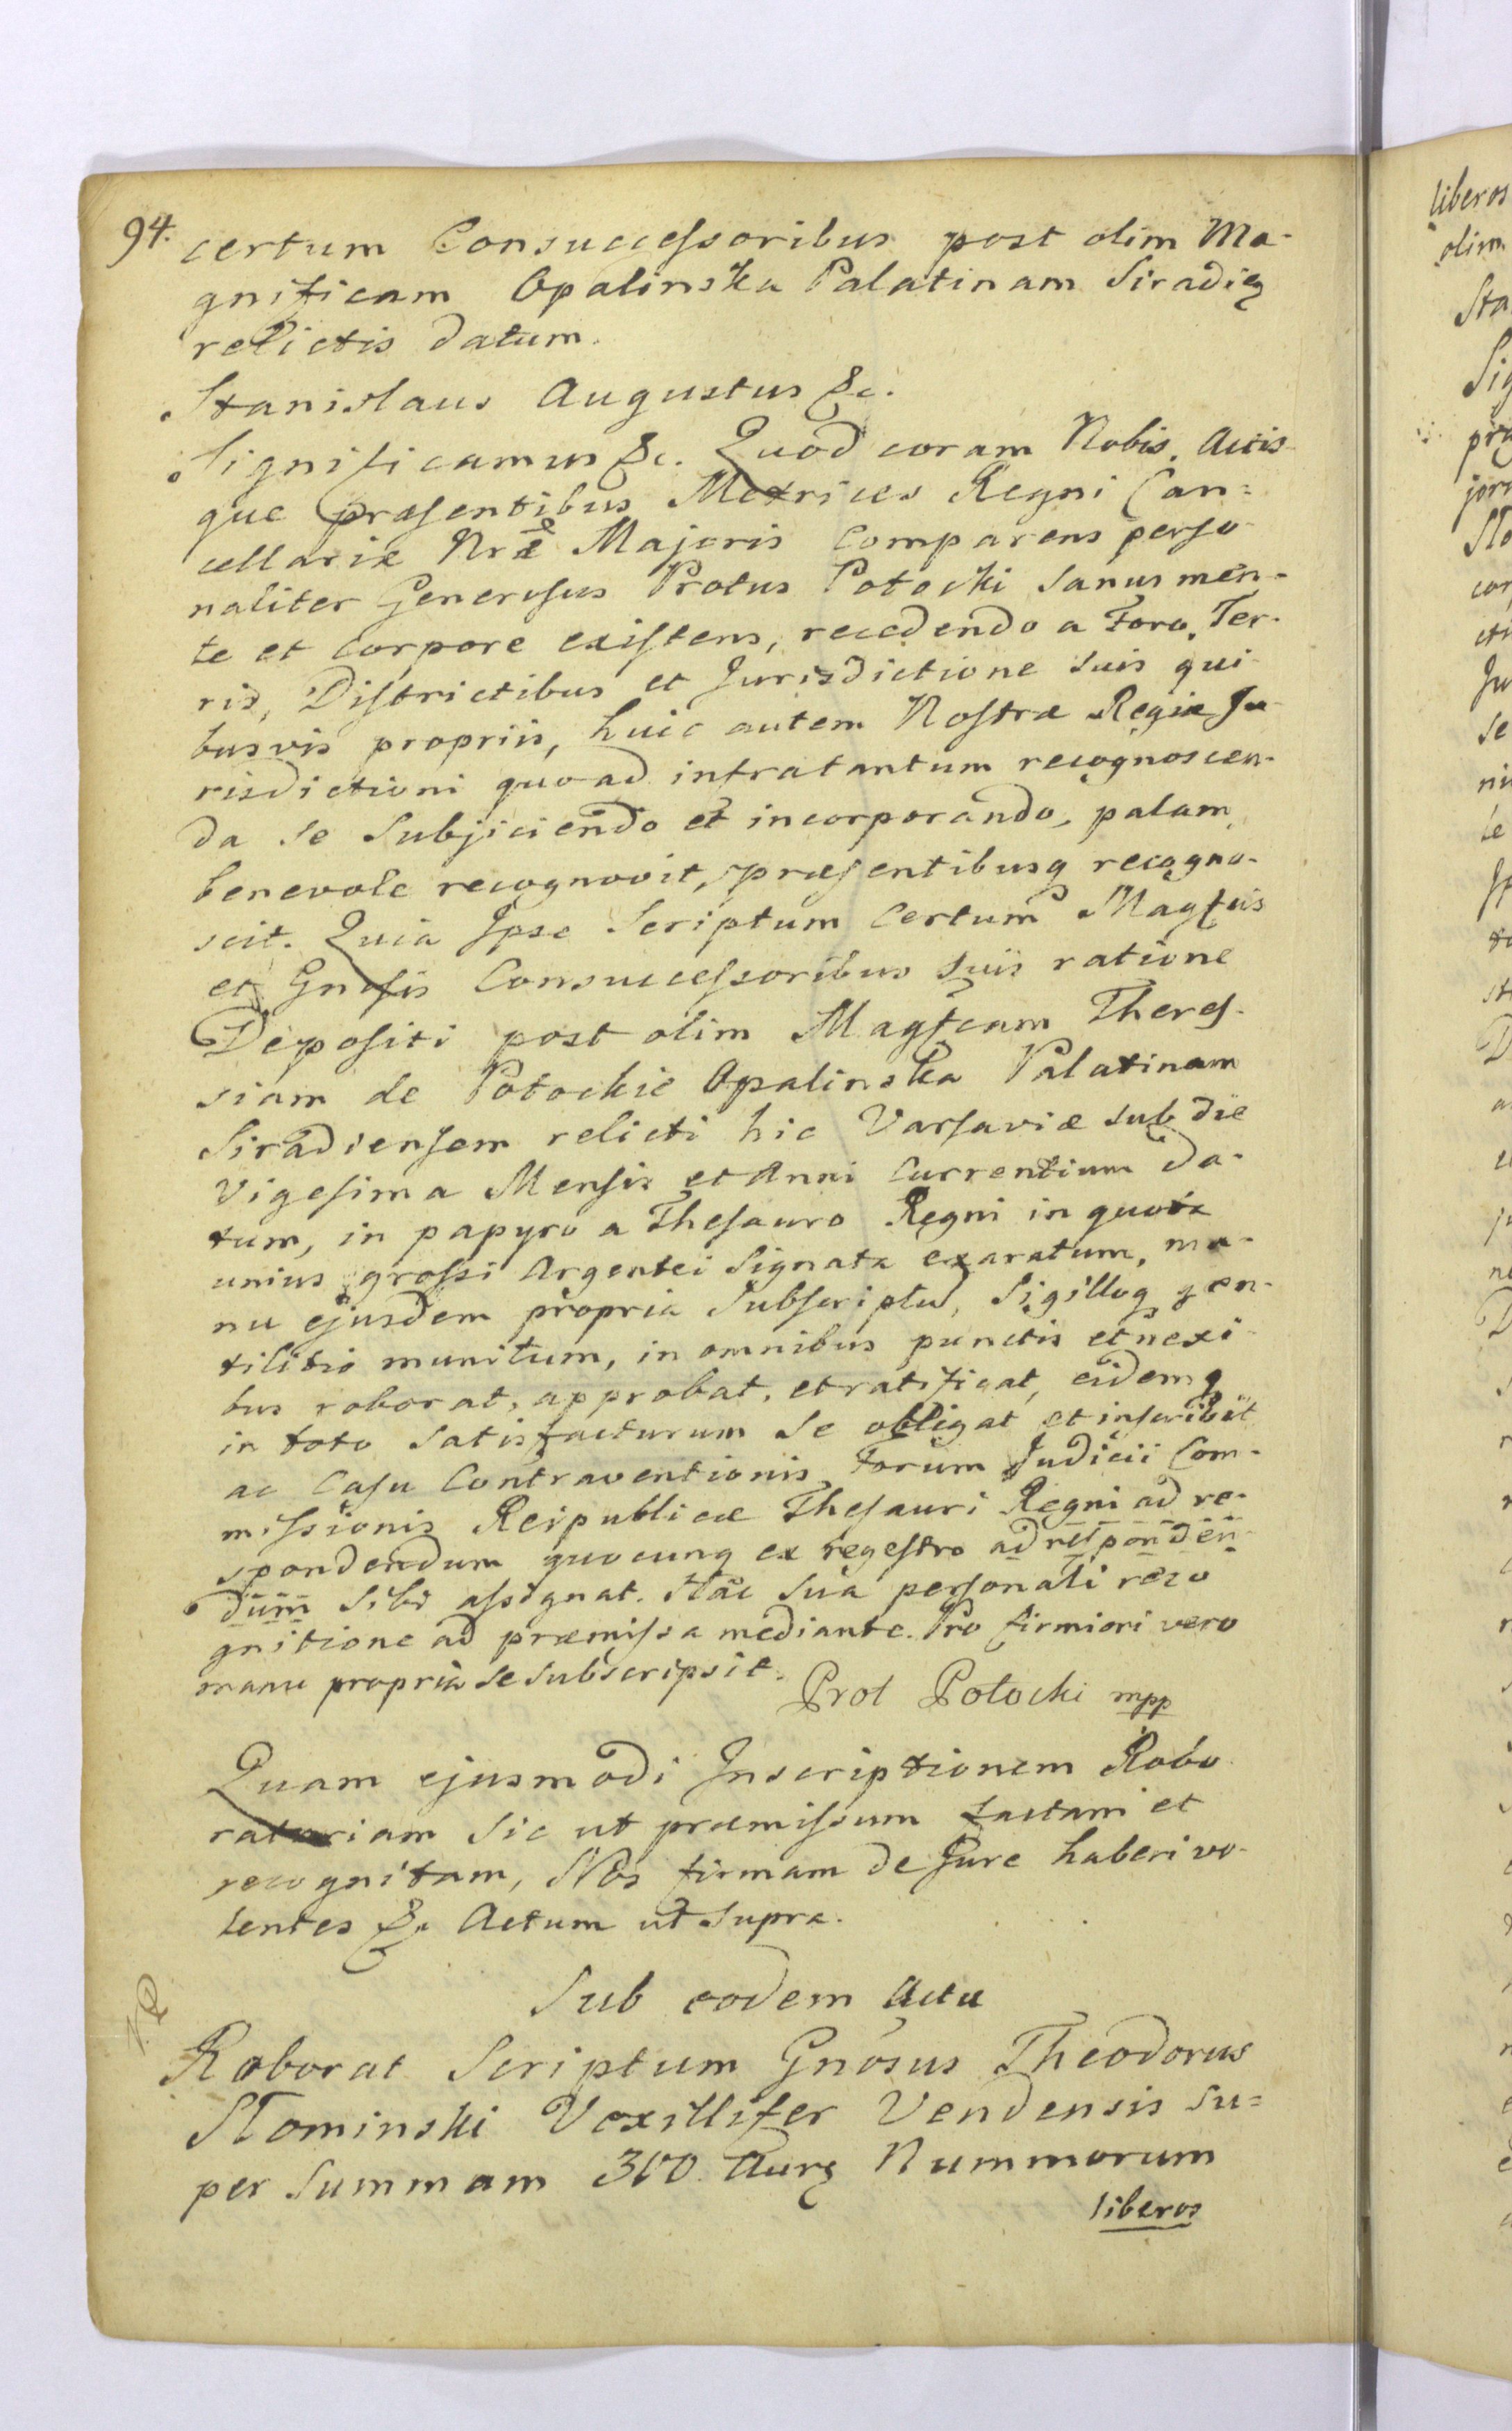 94.
certum Consuccessoribus post olim Ma-
gnificam Opalinska Palatinam Siradię
relictis datum.
Stanislaus Augustus &c.
Significamus &c. Quod coram Nobis, Actis
que præsentibus Metrices Regni Can=
cellariæ Nræ Majoris Comparens perso-
naliter Generosus Protus Potocki sanus men-
te et Corpore existens, recedendo a Foro, Ter-
ris, Districtibus et Jurisdictione suis qui-
busvis propriis, huic autem Nostræ Regiæ Ju-
risdictioni quoad infratantum recognoscen-
da se Subjiciendo et incorporando, palam,
benevole recognovit, præsentibusq recogno-
scit. Quia Ipse Scriptum Certum Magfcis
et Gnosis Consuccessoribus suis ratione
Depositi post olim Magfcam Theres-
siam de Potockie Opalinska Palatinam
Siradiensem relicti hic Varsaviæ sub die
Vigesima Mensis et Anni Currentium da-
tum, in papyro a Thesauro Regni in quota
unius grossi Argentei Signata exaratum, ma-
nu ejusdem propria Subscriptū, Sigilloq gen-
tilitio munitum, in omnibus punctis et nexi-
bus roborat, approbat, et ratificat, eidemq
in toto Satisfacturum Se obligat et inscribit
ac Casu Contraventionis Forum Judicii Com-
missionis Reipublicæ Thesauri Regni ad re-
spondendum quocunq ex regestro ad responden-
dum Sibi assignat. Hac Sua personali reco
gnitione ad præmissa mediante. Pro firmiori vero
manu propria se subscripsit.
Prot Potocki mpp
Quam ejusmodi Inscriptionem Robo-
ratoriam Sic ut præmissum factam et
recognitam, Nos firmam de Jure haberi vo-
lentes &c Actum ut Supra.
Sub eodem Actu
Roborat Scriptum Gnosus Theodorus
Słominski Vexillifer Vendensis Su=
per Summam 300 Aurę Nummorum
liberos